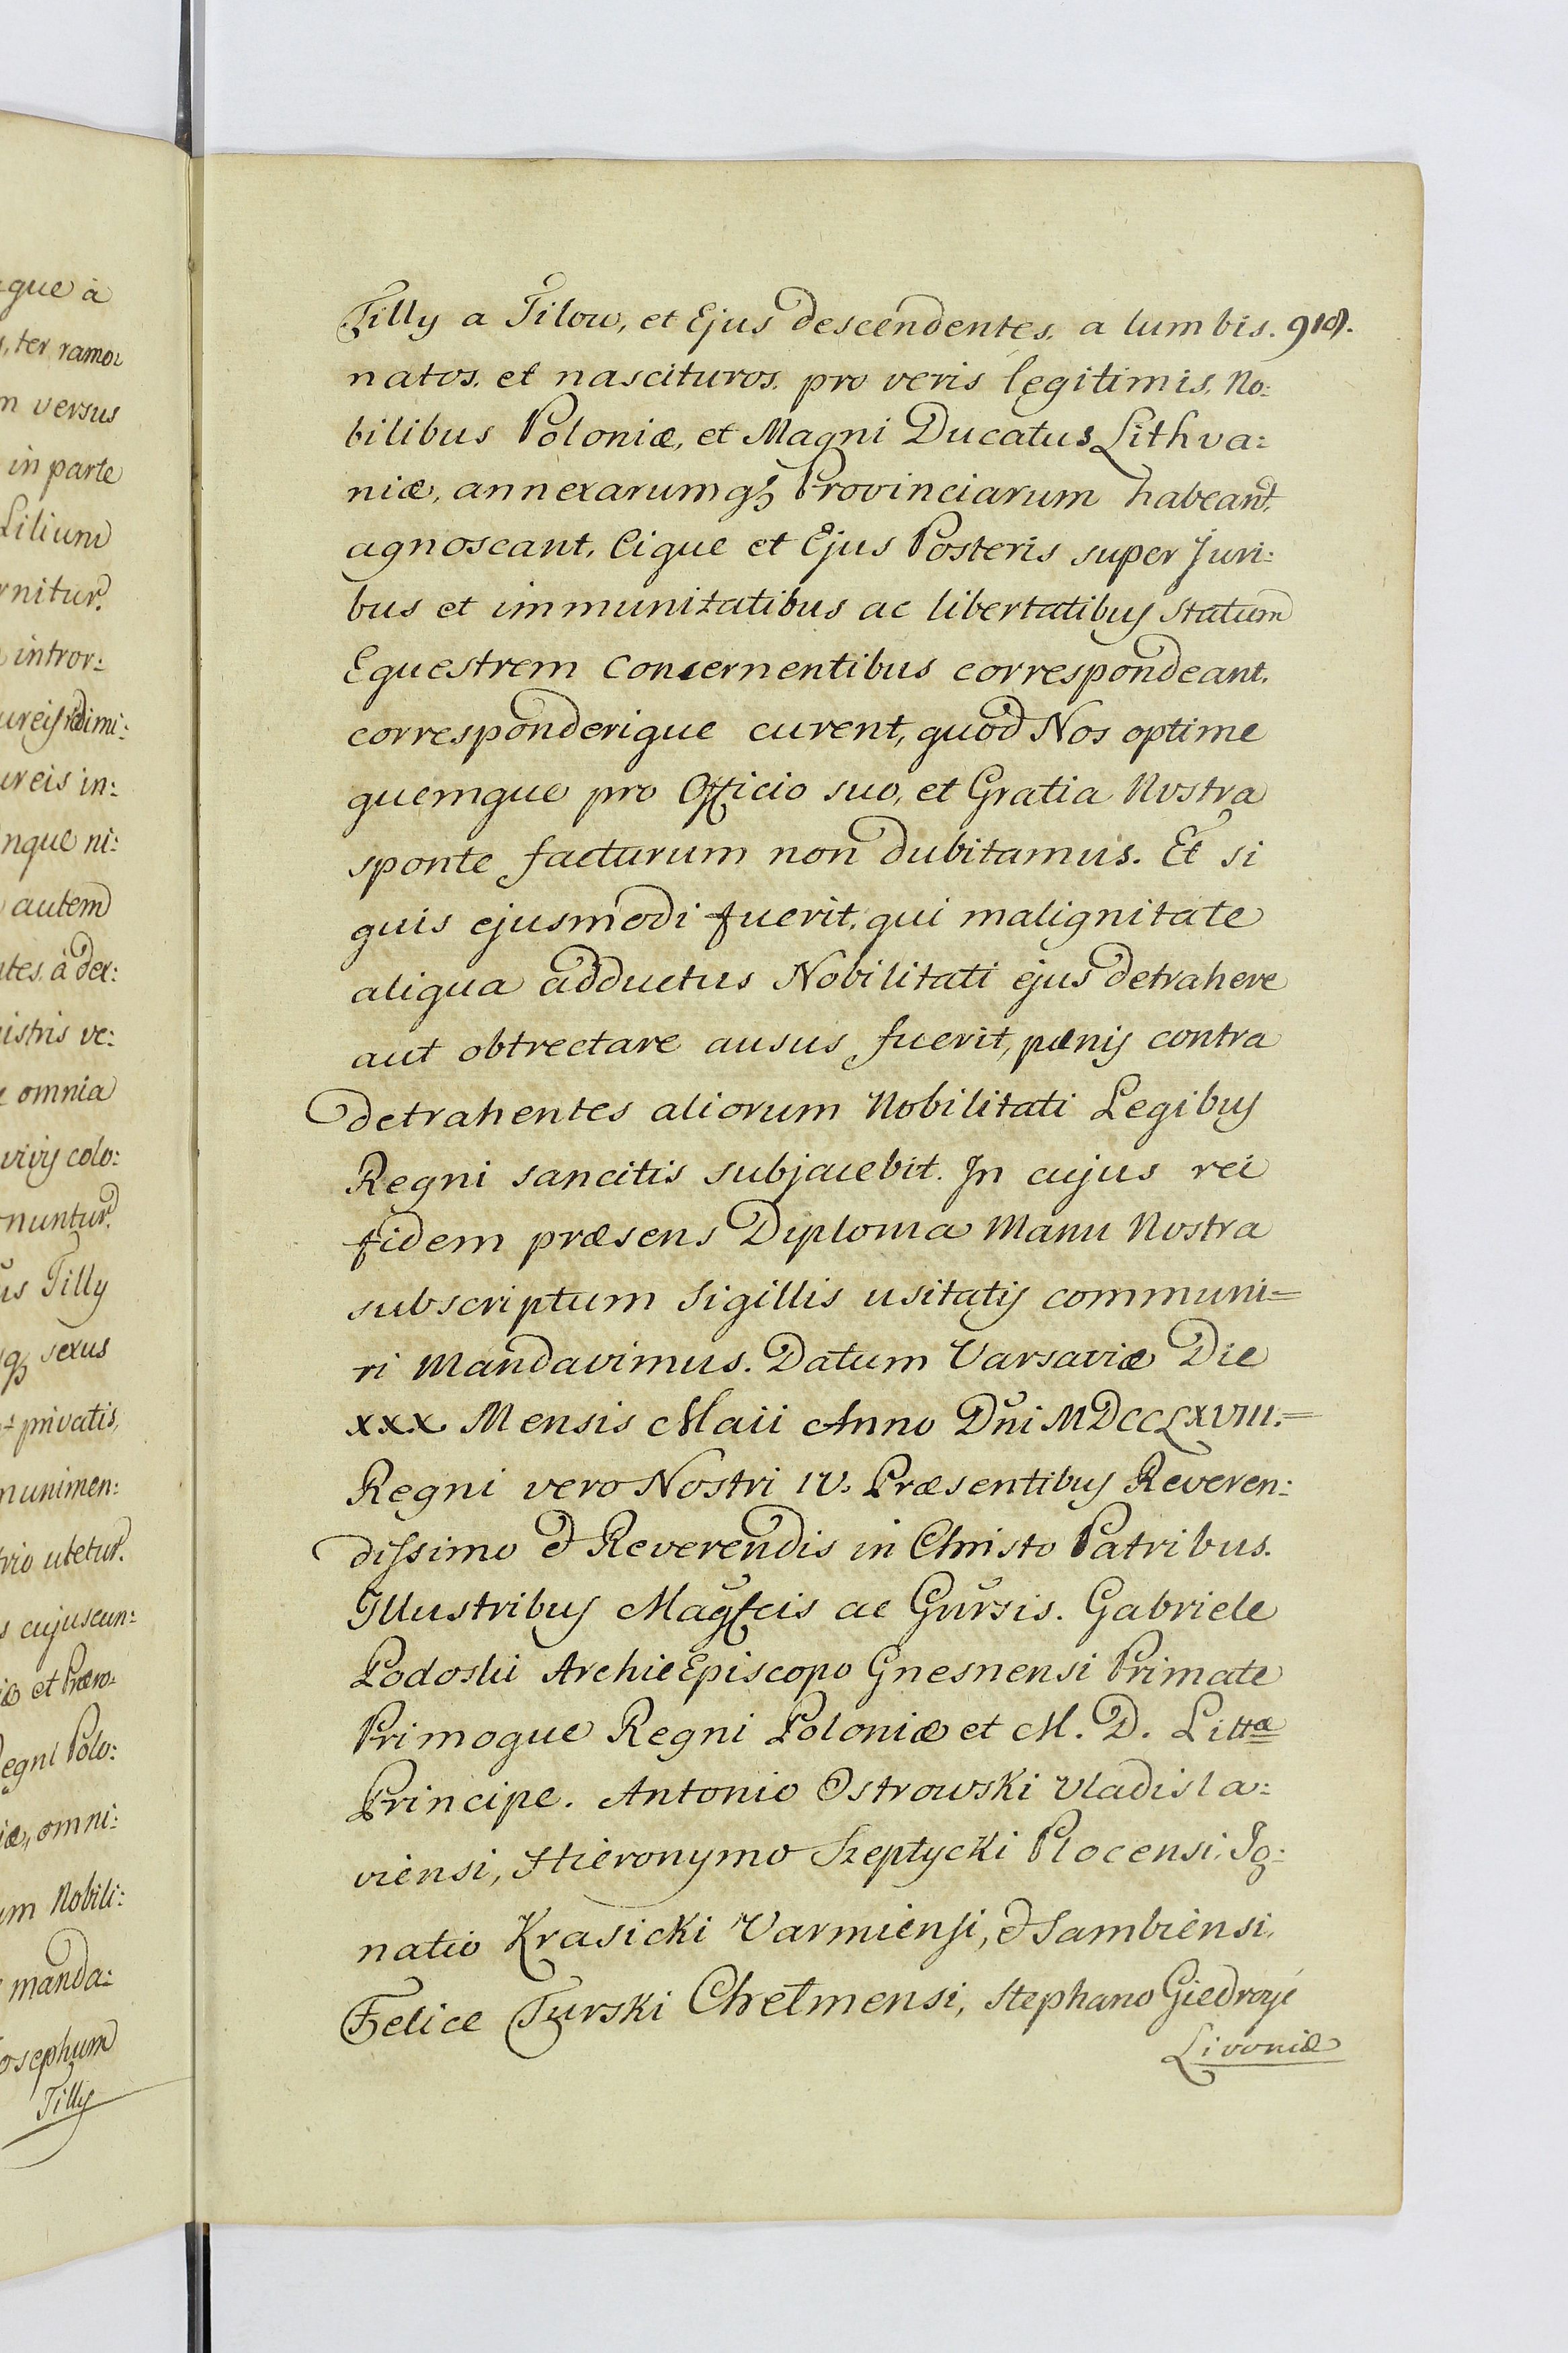 gue à
, ter ramo:
m versus
in parte
Lilium
rnitur.
intror:
ureis redimi:
ureis in:
nque ni:
autem
tes. à dex:
istris ve:
omnia
vivis colo:
nuntur.
us Tilly
q₃ sexus
privatis,
munimen:
rio utetur.
s cujuscun:
et Præro:
egni Polo:
iæ, omni:
um Nobili:
manda:
osephum
Tilly
Tilly a Tilow, et Ejus descendentes, a lumbis. 918.
natos, et nascituros, pro veris legitimis, No:
bilibus Poloniæ, et Magni Ducatus Lithva:
niæ, annexarumq₃ Provinciarum habeant,
agnoscant, Eique et Ejus Posteris super Juri:
bus et immunitatibus ac libertatibus statum
Equestrem concernentibus correspondeant,
corresponderique curent, quod Nos optime
quemque pro Officio suo, et Gratia Nostra
sponte facturum non dubitamus. Et si
quis ejusmodi fuerit, qui malignitate
aliqua adductus Nobilitati ejus detrahere
aut obtrectare ausus fuerit, pænis contra
detrahentes aliorum Nobilitati Legibus
Regni sancitis subjacebit. In cujus rei
fidem præsens Diploma Manu Nostra
subscriptum Sigillis usitatis communi=
ri Mandavimus. Datum Varsaviæ Die
xxx Mensis Maii Anno Dni MDCCLXVIII.=
Regni vero Nostri IV. Præsentibus Reveren:
dissimo & Reverendis in Christo Patribus.
Illustribus Magfcis ac Gnrsis. Gabriele
Podoski ArchieEpiscopo Gnesnensi Primate
Primoque Regni Poloniæ et M. D. Littæ
Principe. Antonio Ostrowski Vladisla:
viensi, Hieronymo Szeptycki Plocensi, Ig:
natio Krasicki Varmiensi, & Sambiensi,
Felice Turski Chełmensi, Stephano Giedroyć
Livoniæ